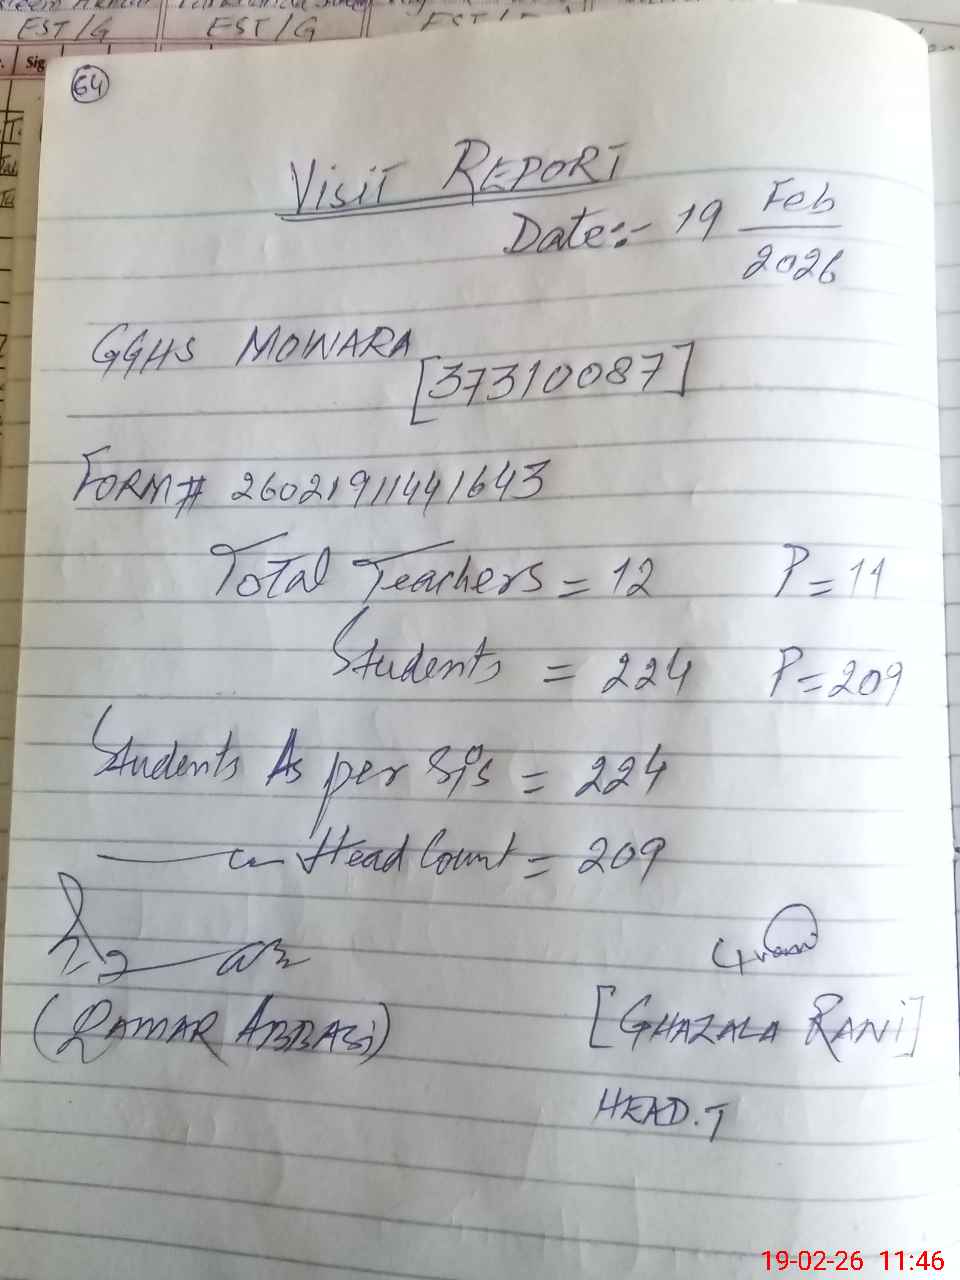 EST/G EST/G EST/
Sig
64
Visit REPORT
Date:- 19 Feb
2026
GGHS MOWARA
[37310087]
FORM# 26021911441643
Total Teachers = 12 P=11
Students = 224 P=209
Students As per Sis = 224
Head Count = 209
(QAMAR ABBASi) [GHAZALA RANi]
HEAD.T
19-02-26 11:46